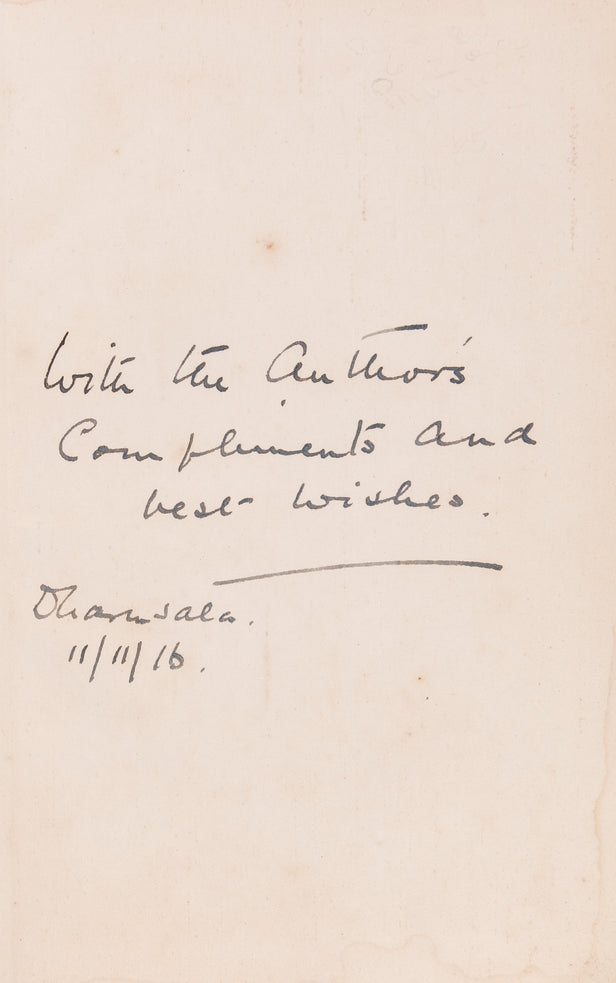 With the Author's
Compliments and
best wishes.
Dharmsala.
11/11/16.